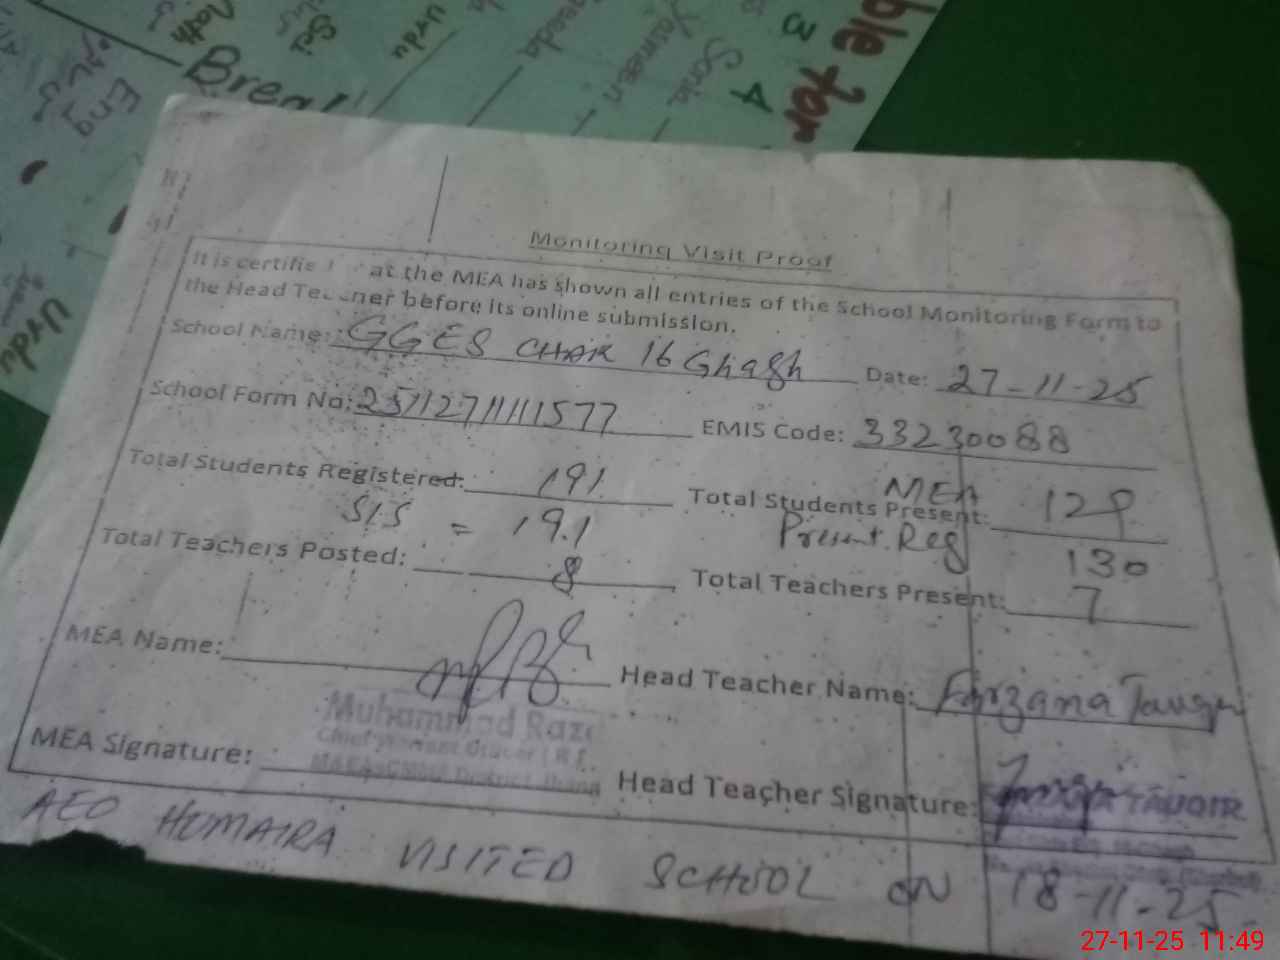 ble for
3 4
Sonia
Yasmeen
Urdu
Sci
Math
Break
Eng
Urdu
Monitoring Visit Proof
It is certifie at the MEA has shown all entries of the School Monitoring Form to
the Head Te ner before its online submission.
School Name: GGES CHAK 16 Ghagh Date: 27-11-25
School Form No: 25112711111577 EMIS Code: 33230088
Total Students Registered: 191 Total Students Present: MEA 129
SIS = 191 Present Reg 130
Total Teachers Posted: 8 Total Teachers Present: 7
MEA Name: Head Teacher Name: Farzana
Muhammad Raza
MEA Signature: Head Teacher Signature:
District Jhang
TAUQIR
AEO HUMAIRA VISITED SCHOOL ON 18-11-25.
27-11-25 11:49